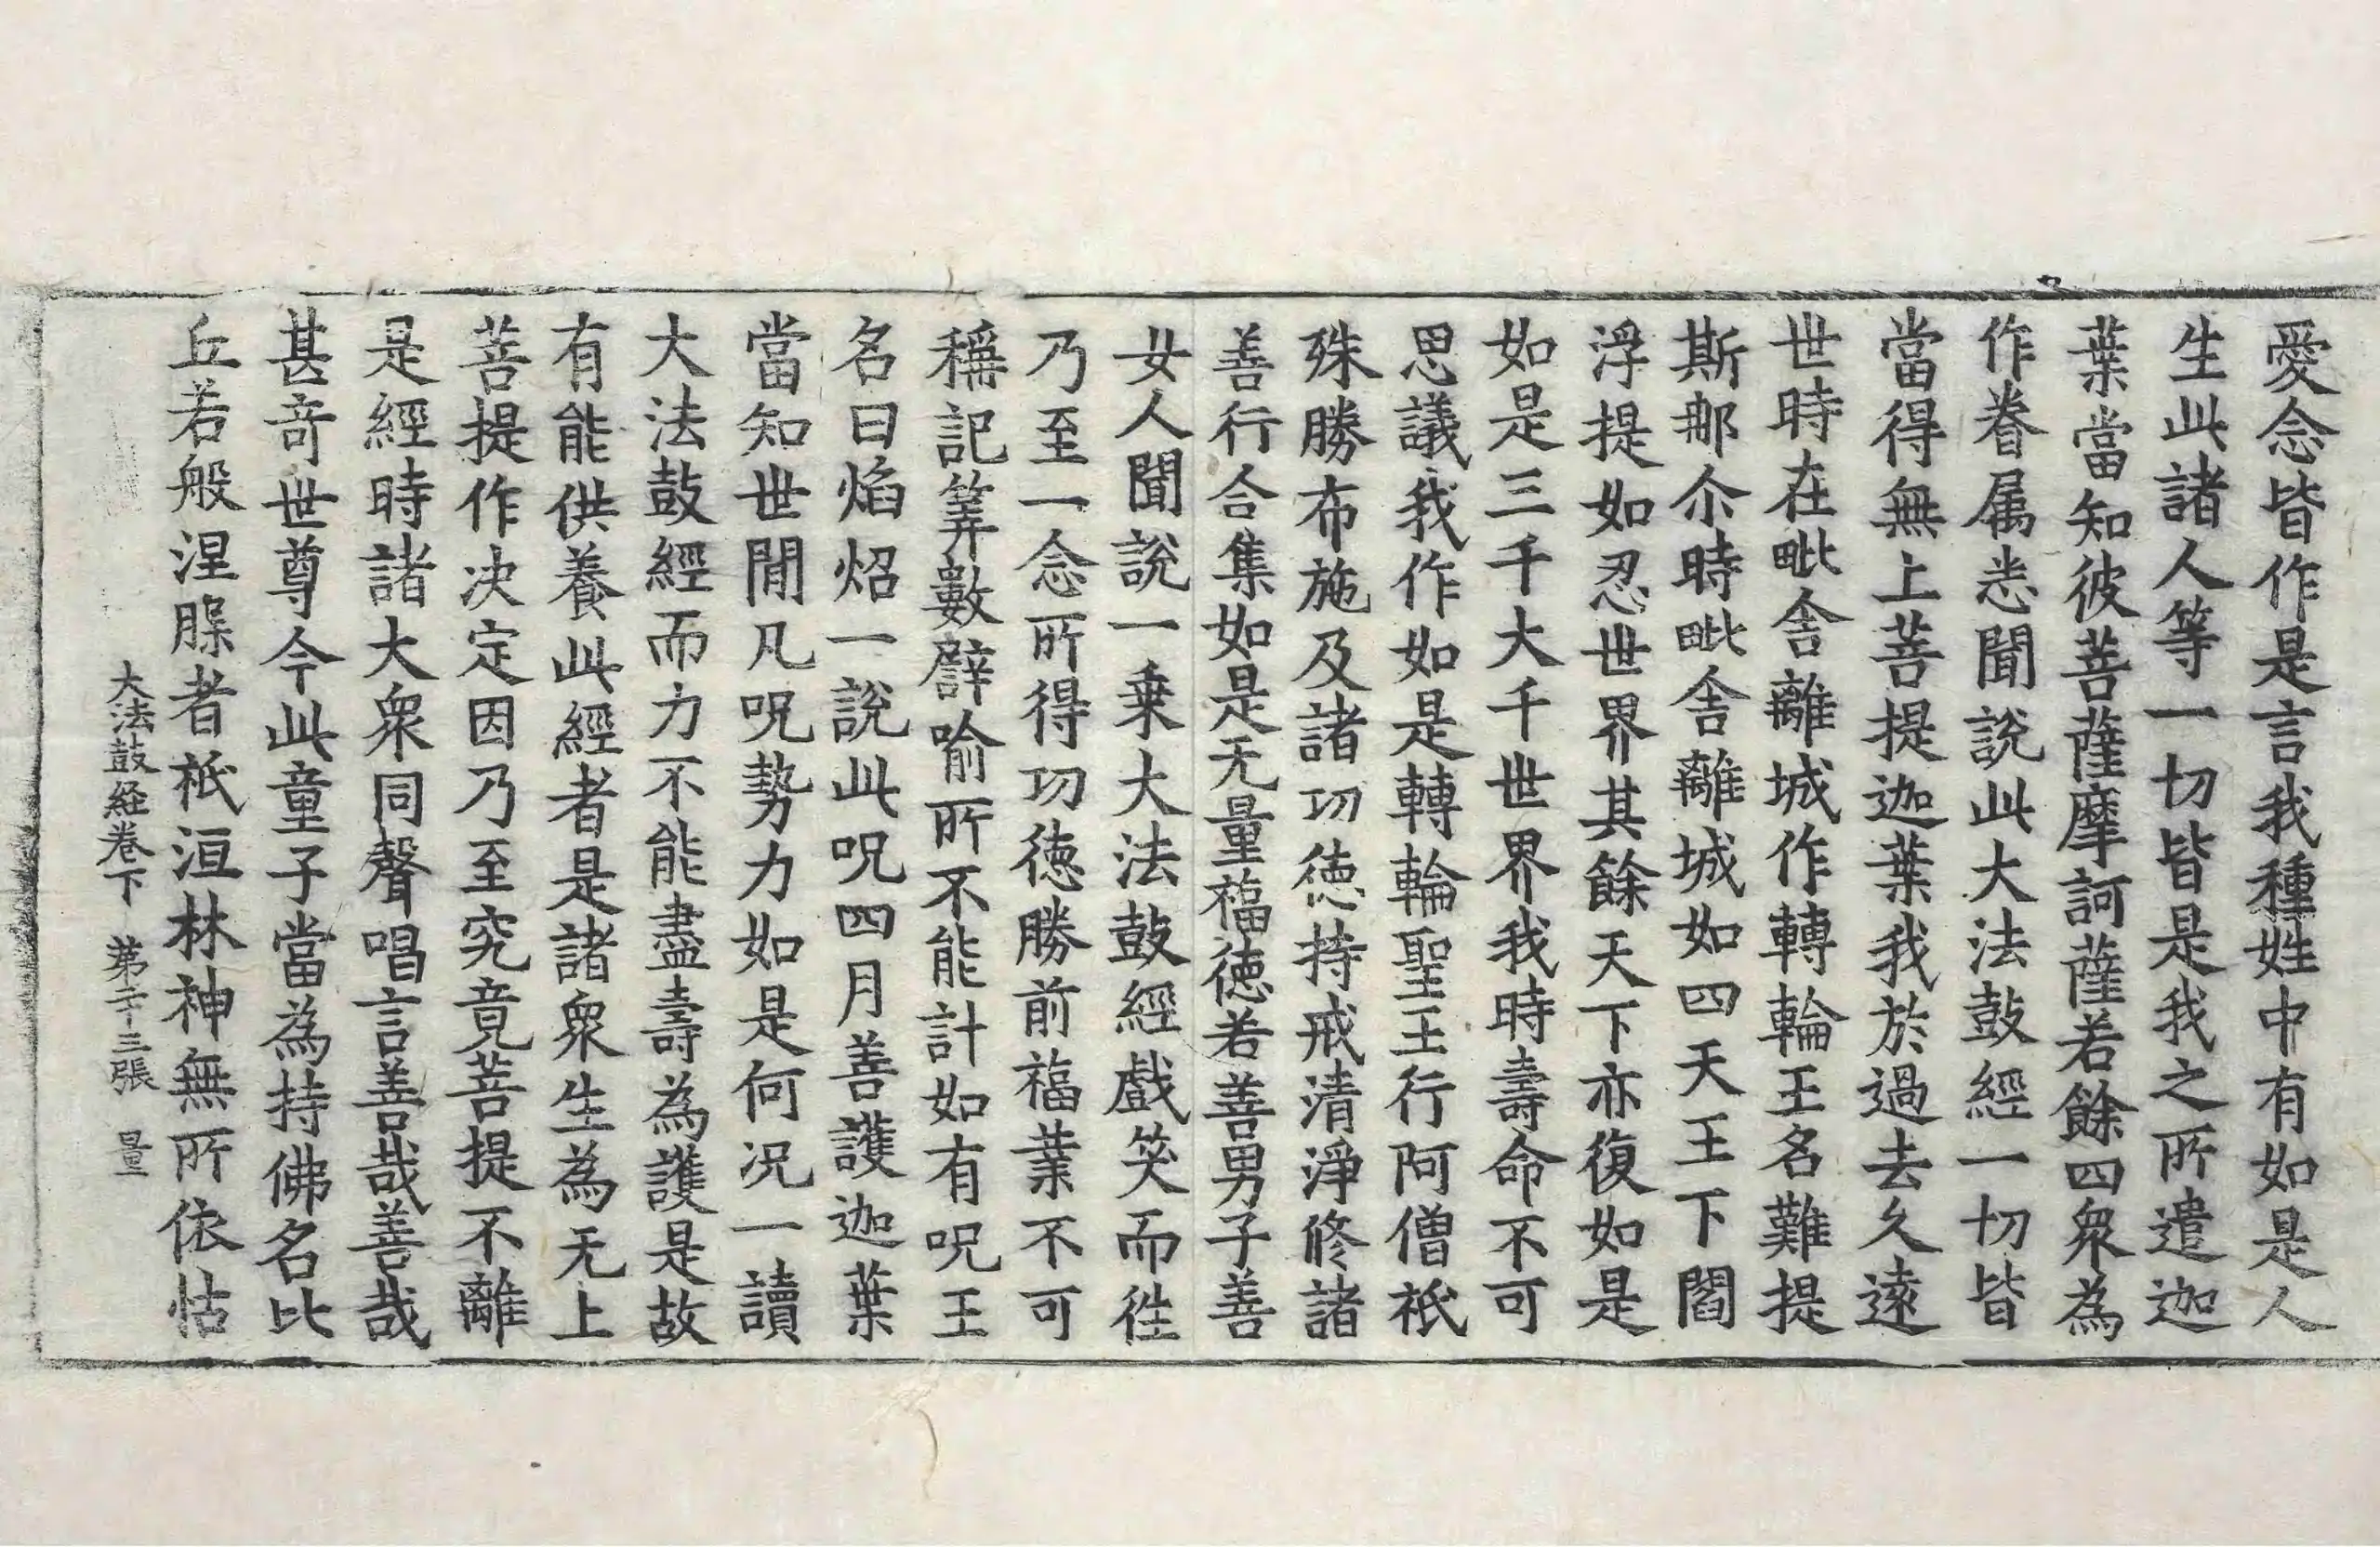 愛念皆作是言我種姓中有如是人
生此諸人等一切皆是我之所遣迦
葉當知彼菩薩摩訶薩若餘四衆為
作眷属悉聞說此大法鼓經一切皆
當得無上菩提迦葉我於過去久遠
世時在毗舍離城作轉輪王名難提
斯那尒時毗舍離城如四天王下閻
浮提如忍世界其餘天下亦復如是
如是三千大千世界我時壽命不可
思議我作如是轉輪聖王行阿僧祇
殊勝布施及諸功徳持戒清淨修諸
善行合集如是无量福徳若善男子善
女人聞說一乗大法鼓經戲笑而徃
乃至一念所得功徳勝前福業不可
稱記筭數譬喻所不能計如有呪王
名曰焰炤一說此呪四月善護迦葉
當知世間凡呪勢力如是何况一讀
大法鼓經而力不能盡壽為護是故
有能供養此經者是諸衆生為无上
菩提作决定因乃至究竟菩提不離
是經時諸大衆同聲唱言善哉善哉
甚竒世尊今此童子當為持佛名比
丘若般涅槃者祇洹林神無所依怙
大法鼓経卷下 第十三張 量